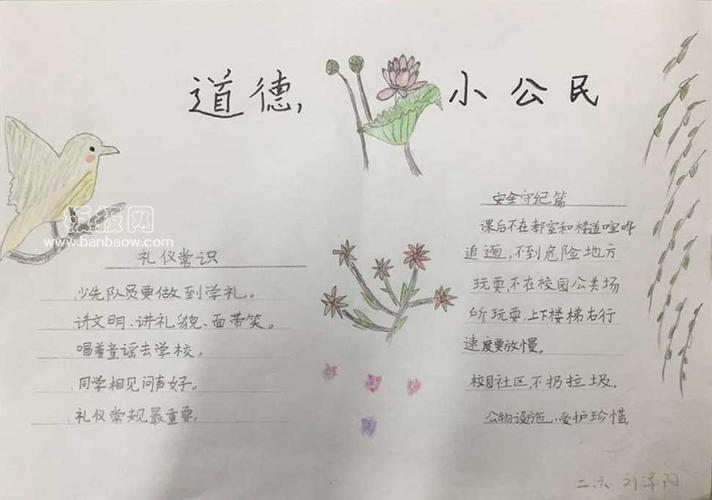 道德,小公民
礼仪常识
少先队员要做到学礼。
讲文明、讲礼貌、面带笑。
唱着童谣去学校。
同学相见问声好。
礼仪常规最重要。
安全守纪篇
课后不在教室和楼道喧哗
追逐,不到危险地方
玩耍,不在校园公共场
所玩耍,上下楼梯右行
速度要放慢。
校园社区,不扔垃圾。
公物设施,爱护珍惜
二六
板报网
www.banbaow.com